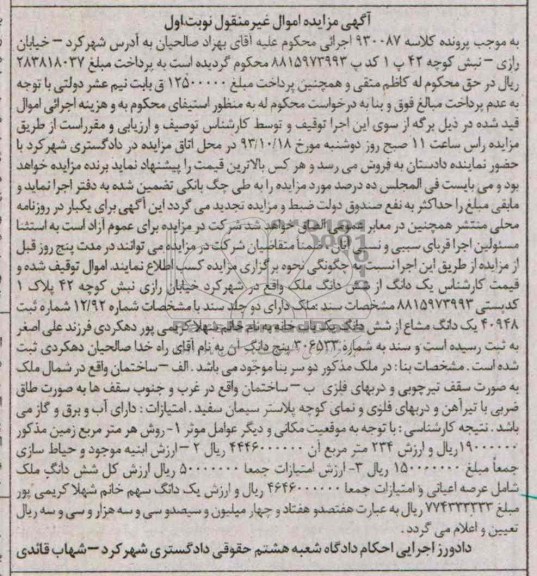 آگهی مزایده اموال غیر منقول نوبت اول
به موجب پرونده کلاسه ۹۳۰۰۸۷ اجرائی محکوم علیه آقای بهزاد صالحیان به آدرس شهرکرد – خیابان
رازی – نبش کوچه ۴۲ پ ۱ کد پ ۸۸۱۵۹۷۳۹۹۳ محکوم گردیده است به پرداخت مبلغ ۲۸۳۸۱۸۰۳۷
ریال در حق محکوم له کاظم متقی و همچنین پرداخت مبلغ ۱۲۵۰۰۰۰۰ ق بابت نیم عشر دولتی با توجه
به عدم پرداخت مبالغ فوق و بنا به درخواست محکوم له به منظور استیفای محکوم به و هزینه اجرائی اموال
قید شده در ذیل برگه از سوی این اجرا توقیف و توسط کارشناس توصیف و ارزیابی و مقرراست از طریق
مزایده راس ساعت ۱۱ صبح روز دوشنبه مورخ ۹۳/۱۰/۱۸ در محل اتاق مزایده در دادگستری شهرکرد با
حضور نماینده دادستان به فروش می رسد و هر کس بالاترین قیمت را پیشنهاد نماید برنده مزایده خواهد
بود و می بایست فی المجلس ده درصد مورد مزایده را به طی چک بانکی تضمین شده به دفتر اجرا نماید و
مابقی مبلغ را حداکثر به نفع صندوق دولت ضبط و مزایده تجدید می گردد این آگهی برای یکبار در روزنامه
محلی منتشر همچنین در معابر عمومی الصاق خواهد شد شرکت در مزایده برای عموم آزاد است به استثنا
مسئولین اجرا قربای سببی و نسبی آنان . ضمناً متقاضیان شرکت در مزایده می توانند در مدت پنج روز قبل
از مزایده از طریق این اجرا نسبت به چگونگی نحوه برگزاری مزایده کسب اطلاع نمایند. اموال توقیف شده و
قیمت کارشناس یک دانگ از شش دانگ ملک واقع در شهرکرد خیابان رازی نبش کوچه ۴۲ پلاک ۱
کدپستی ۸۸۱۵۹۷۳۹۹۳ مشخصات سند ملک دارای دو جلد سند با مشخصات شماره ۱۲/۹۲ شماره ثبت
۴۰۹۴۸ یک دانگ مشاع از شش دانگ یکباب خانه به نام خانم شهلا کریمی پور دهکردی فرزند علی اصغر
به ثبت رسیده است و سند به شماره ۳۰۶۵۳۳ پنج دانگ آن به نام آقای راه خدا صالحیان دهکردی ثبت
شده است . مشخصات بنا : در ملک مذکور دو سر بنا موجود می باشد . الف – ساختمان واقع در شمال ملک
به صورت سقف تیرچوبی و دربهای فلزی ب – ساختمان واقع در غرب و جنوب سقف ها به صورت طاق
ضربی با تیرآهن و دربهای فلزی و نمای کوچه پلاستر سیمان سفید . امتیازات : دارای آب و برق و گاز می
باشد . نتیجه کارشناسی : با توجه به موقعیت مکانی و دیگر عوامل موثر ۱– روش هر متر مربع زمین مذکور
۱۹۰۰۰۰۰۰ ریال و ارزش ۲۳۴ متر مربع آن ۴۴۴۶۰۰۰۰۰۰ ریال ۲ – ارزش ابنیه موجود و حیاط سازی
جمعاً مبلغ ۱۵۰۰۰۰۰۰۰ ریال ۳- ارزش امتیازات جمعا ۵۰۰۰۰۰۰۰ ریال ارزش کل شش دانگ ملک
شامل عرصه اعیانی و امتیازات جمعا ۴۶۴۶۰۰۰۰۰۰ ریال و ارزش یک دانگ سهم خانم شهلا کریمی پور
مبلغ ۷۷۴۳۳۳۳۳۳ ریال به عبارت هفتصدو هفتاد و چهار میلیون و سیصدو سی و سه هزار و سی و سه ریال
تعیین و اعلام می گردد .
دادورز اجرایی احکام دادگاه شعبه هشتم حقوقی دادگستری شهرکرد – شهاب قائدی